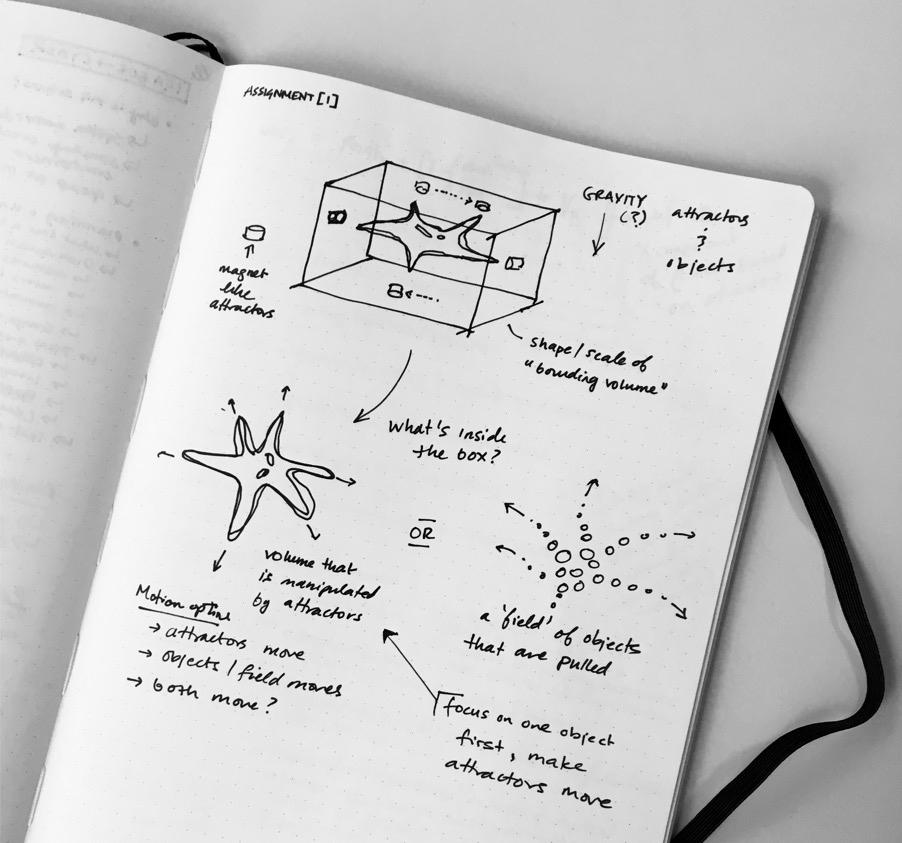 ASSIGNMENT [1]
GRAVITY
(?)
attractors
?
objects
magnet
like
attractors
shape/scale of
"bounding volume"
What's inside
the box?
OR
volume that
is manipulated
by attractors
a 'field' of objects
that are pulled
Motion option
→ attractors move
→ objects/field moves
→ both move?
Focus on one object
first, make
attractors move